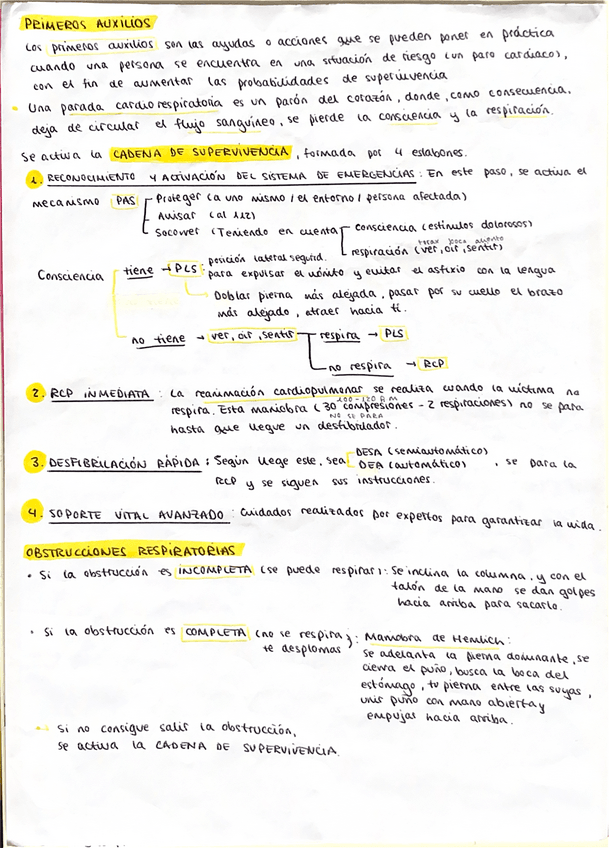 PRIMEROS AUXILIOS
Los primeros auxilios son las ayudas o acciones que se pueden poner en práctica
cuando una persona se encuentra en una situación de riesgo (un paro cardíaco),
con el fin de aumentar las probabilidades de supervivencia
Una parada cardiorespiratoria es un parón del corazón, donde, como consecuencia,
deja de circular el flujo sanguíneo, se pierde la consciencia y la respiración.
Se activa la CADENA DE SUPERVIVENCIA, formada por 4 eslabones.
1. RECONOCIMIENTO Y ACTIVACIÓN DEL SISTEMA DE EMERGENCIAS: En este paso, se activa el
mecanismo PAS
Proteger (a uno mismo / el entorno / persona afectada)
Avisar (al 112)
Socorrer (Teniendo en cuenta
consciencia (estímulos dolorosos)
tórax boca aliento
respiración (ver, oír, sentir)
Consciencia
tiene → PLS: posición lateral segurid.
para expulsar el vómito y evitar el asfixio con la lengua
Doblar pierna más alejada, pasar por su cuello el brazo
más alejado, atraer hacia ti.
no tiene → ver, oír, sentir
respira → PLS
no respira → RCP
2. RCP INMEDIATA: La reanimación cardiopulmonar se realiza cuando la víctima no
100-120 PM
respira. Esta maniobra (30 compresiones - 2 respiraciones) no se para
NO SE PARA
hasta que llegue un desfibrilador.
3. DESFIBRILACIÓN RÁPIDA: Según llege este, sea
DESA (semiautomático)
DEA (automático)
, se para la
RCP y se siguen sus instrucciones.
4. SOPORTE VITAL AVANZADO: Cuidados realizados por expertos para garantizar la vida.
OBSTRUCCIONES RESPIRATORIAS
• Si la obstrucción es INCOMPLETA (se puede respirar): Se inclina la columna, y con el
talón de la mano se dan golpes
hacia arriba para sacarlo.
• Si la obstrucción es COMPLETA (no se respira): Maniobra de Hemlich:
te desplomas
Se adelanta la pierna dominante, se
cierra el puño, busca la boca del
estómago, tu pierna entre las suyas,
unir puño con mano abierta y
empujar hacia arriba.
Si no consigue salir la obstrucción,
se activa la CADENA DE SUPERVIVENCIA.